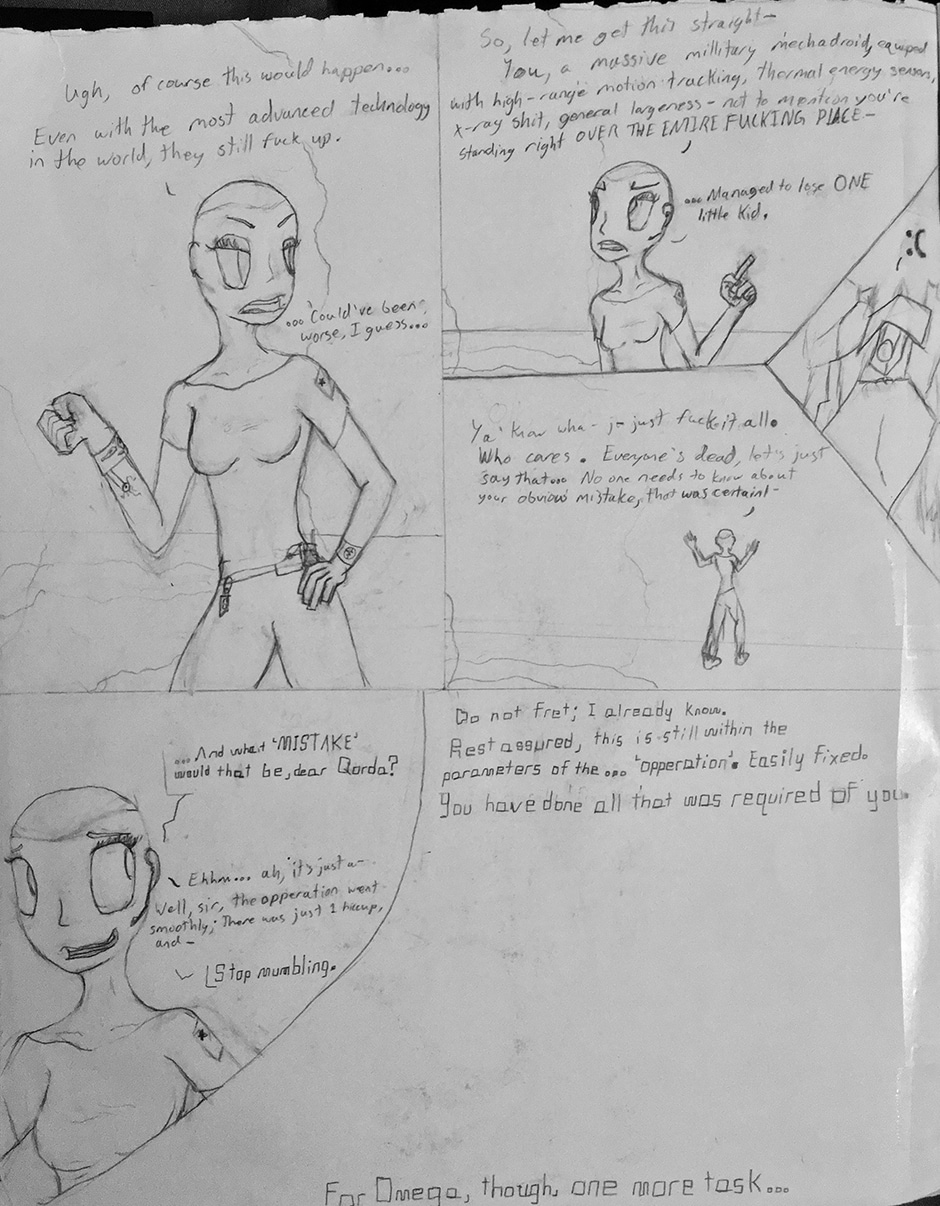 Ugh, of course this would happen...
Even with the most advanced technology
in the world, they still fuck up.
... 'Could've been
worse, I guess...
So, let me get this straight-
You, a massive millitary mechadroid, equiped
with high-range motion tracking, thermal energy sensors,
x-ray shit, general largeness - not to mention you're
standing right OVER THE ENTIRE FUCKING PLACE-
... Managed to lose ONE
little kid.
:(
Ya' know wha- j- just fuck it all.
Who cares. Everyone's dead, let's just
say that... No one needs to know about
your obvious mistake, that was certaint-
... And what 'MISTAKE'
would that be, dear Qorda?
Ehhm... ah, it's just a-
Well, sir, the opperation went
smoothly; There was just 1 hiccup,
and-
Stop mumbling.
Do not fret; I already know.
Rest assured, this is still within the
parameters of the... 'opperation'. Easily fixed.
You have done all that was required of you.
For Omega, though, one more task...